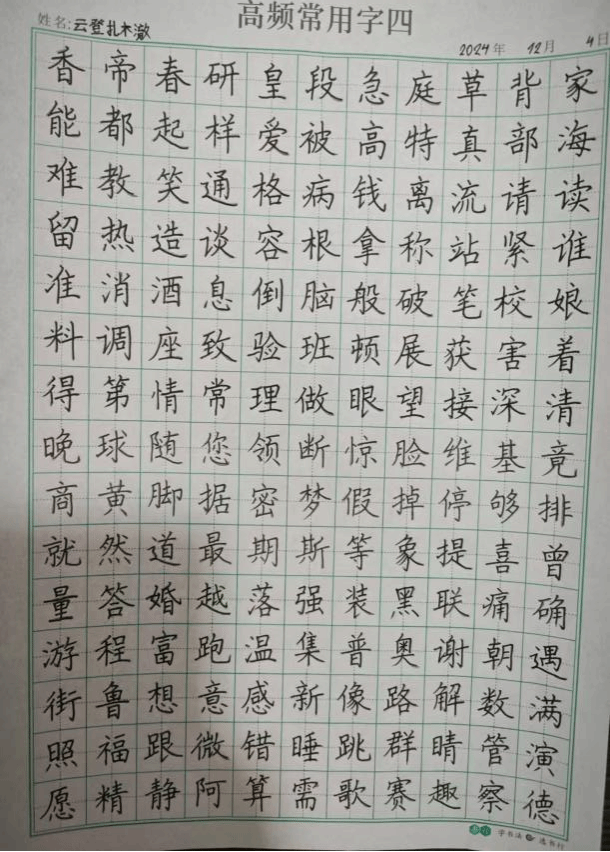 高频常用字四
姓名:云登扎木澈
2024年 12月 4日
香帝春研皇段急庭草背家
能都起样爱被高特真部海
难教笑通格病钱离流请读
留热造谈容根拿称站紧谁
准消酒息倒脑般破笔校娘
料调座致验班顿展获害着
得第情常理做眼望接深清
晚球随您领断惊脸维基竟
商黄脚据密梦假掉停够排
就然道最期斯等象提喜曾
量答婚越落强装黑联痛确
游程富跑温集普奥谢朝遇
街鲁想意感新像路解数满
照福跟微错睡跳群睛管演
愿精静阿算需歌赛趣察德